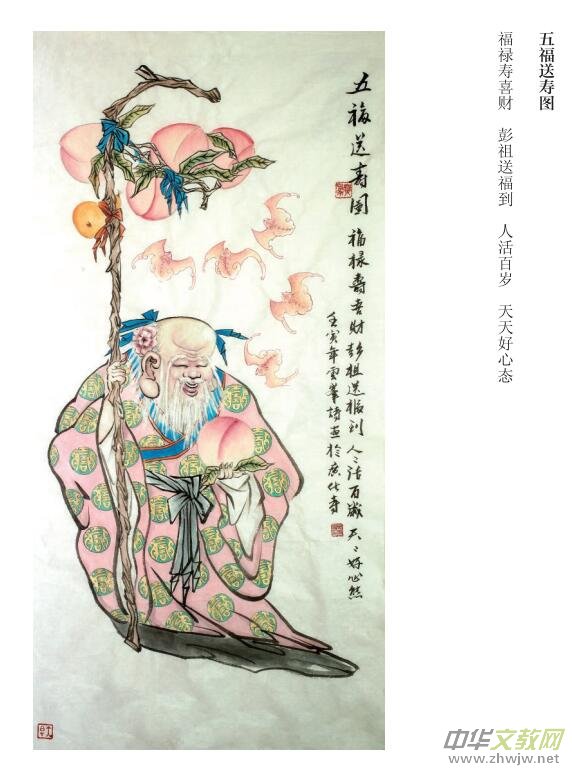 五福送寿图
福禄寿喜财 彭祖送福到 人活百岁 天天好心态
五福送壽圖 福禄壽喜財彭祖送福到人々活百歲天々好心態
壬寅年雲峯詩画於廣化寺
中华文教网
www.zhwjw.net